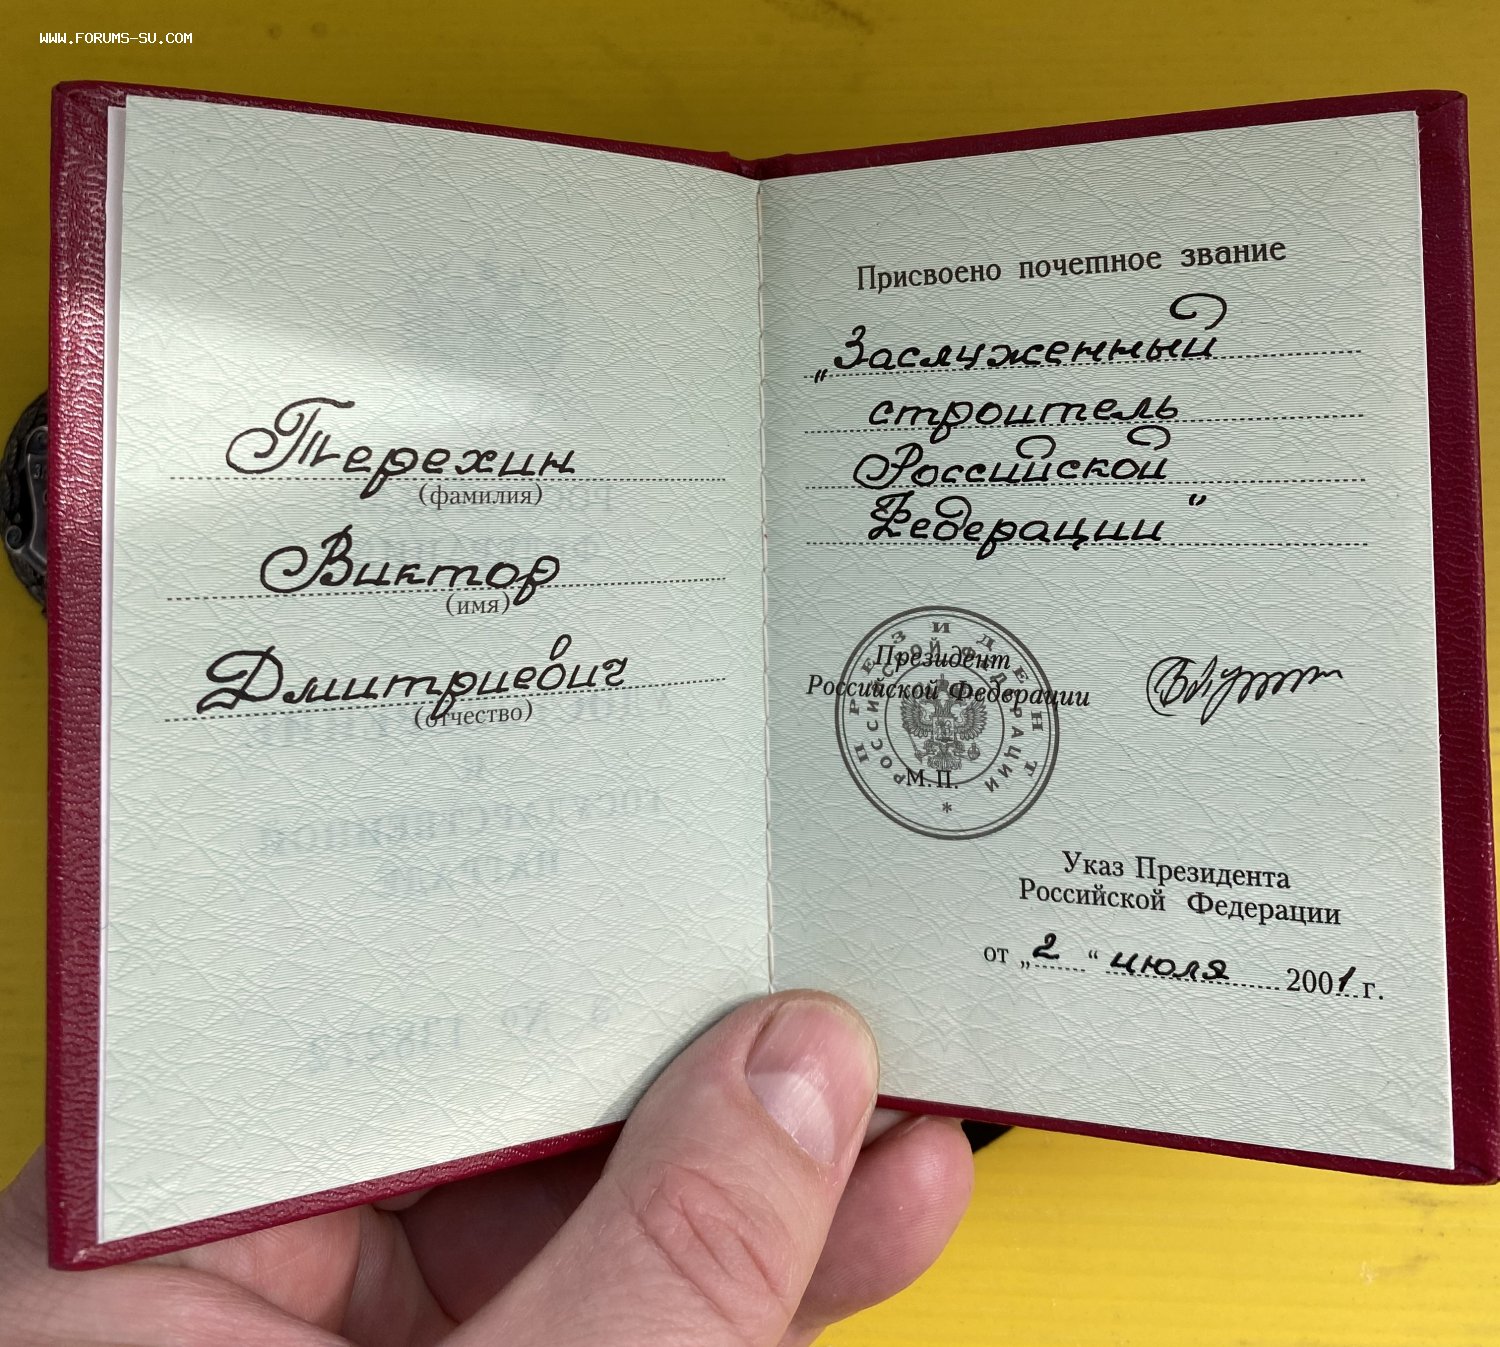 WWW.FORUMS-SU.COM
Терехин
(фамилия)
Виктор
(имя)
Дмитриевич
(отчество)
Присвоено почетное звание
„Заслуженный
строитель
Российской
Федерации"
Президент
Российской Федерации
ПРЕЗИДЕНТ
РОССИЙСКОЙ ФЕДЕРАЦИИ
*
М.П.
Указ Президента
Российской Федерации
от „2 “ июля 2001 г.